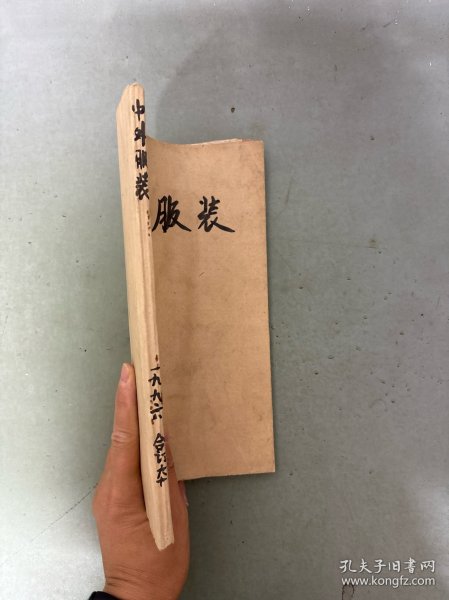 中外服装
一九九六 合订本
服装
孔夫子旧书网
www.kongfz.com